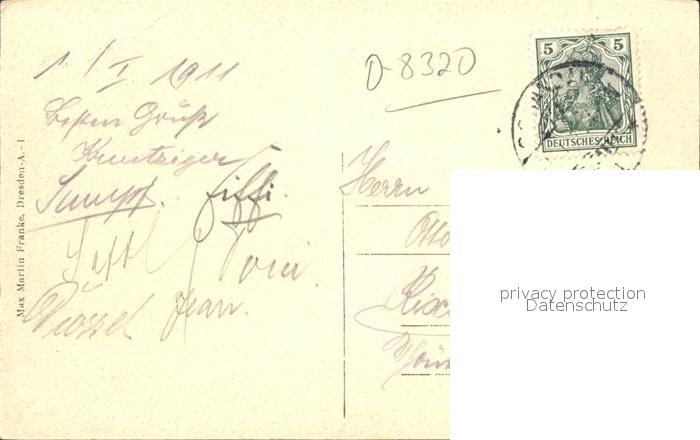 1/I 1911
D-8320
Besten Gruß
Kreutziger
Sumpf. Fiffi.
Toni.
Jean.
Herrn
Otto
Rix
5 5
DEUTSCHES REICH
Max Martin Franke, Dresden-A.-1
privacy protection
Datenschutz